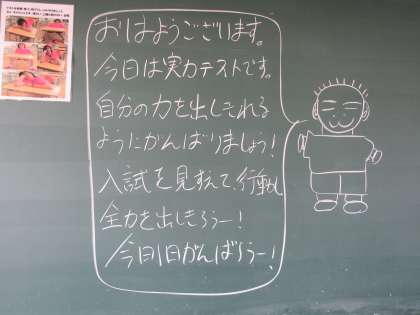 おはようございます。
今日は実力テストです。
自分の力を出しきれる
ようにがんばりましょう!
入試を見すえて、行動し
全力を出しきろうー!
今日1日がんばろうー!